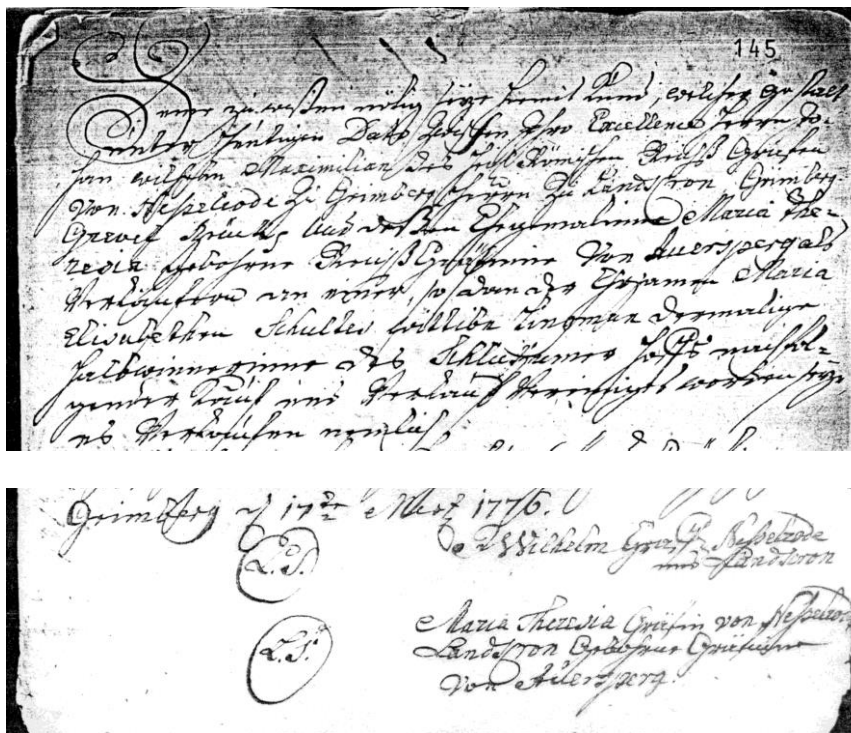 145
Jeme zu wissen nötig seye hiemit kund, welcher gestalt
unter heutigem Dato zwischen Ihro Excellence Herrn Jo-
han Wilhelm Maximilian des heil. Römischen Reichs Grafen
von Nesselrode zu Grimberg Herrn zu Landscron, Grimberg
und dessen Ehegemalinne Maria The-
resia gebohrne Reichs Gräfinne von Auersperg als
Verkäuferen an einer, so dan der Ehrsamen Maria
Elisabethen Schultes Wittibe Lingman dermalige
halbwinnerinne des Hoffs nachfol-
gender Kauf und Verkauf Vereiniget worden seye
es Verkaufen nemlich
Grimberg d 17te Mertz 1776.
L.S.
J Wilhelm Graf v Nesselrode
und Landscron
L.S.
Maria Theresia Gräfin von Nesselrode
Landscron Gebohrne Gräfinne
von Auersperg.